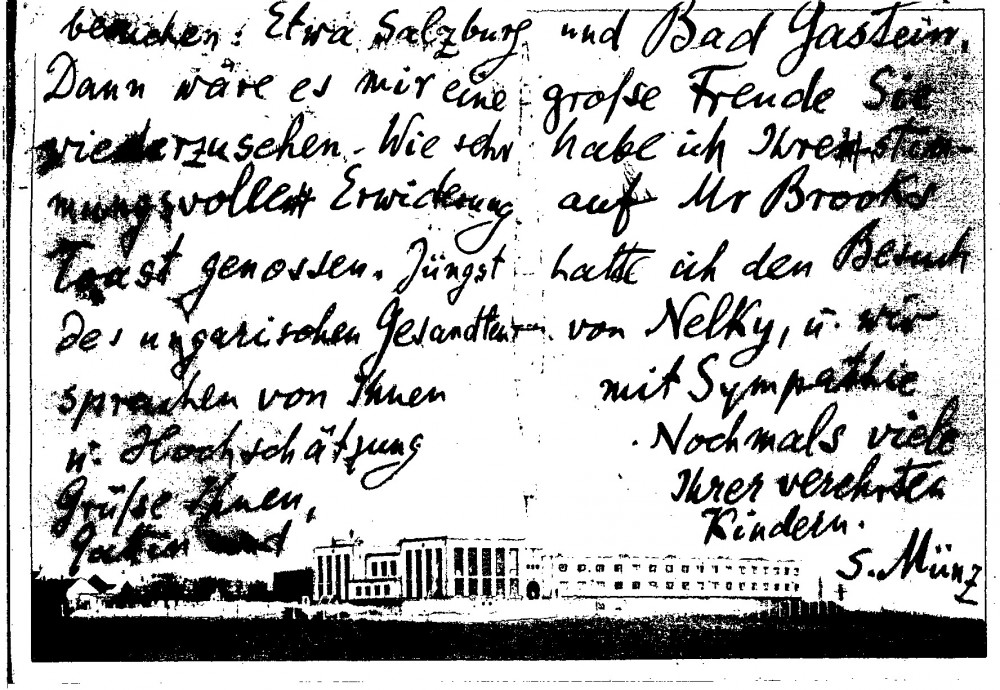 besuchen: Etwa Salzburg und Bad Gastein.
Dann wäre es mir eine große Freude Sie
wiederzusehen. Wie sehr habe ich Ihre stim-
mungsvolle Erwiderung auf Mr Brooks
Toast genossen. Jüngst hatte ich den Besuch
des ungarischen Gesandten von Nelky, u. wir
sprachen von Ihnen mit Sympathie
u. Hochschätzung. Nochmals viele
Grüße Ihnen, Ihrer verehrten
Gattin und Kindern.
S. Münz